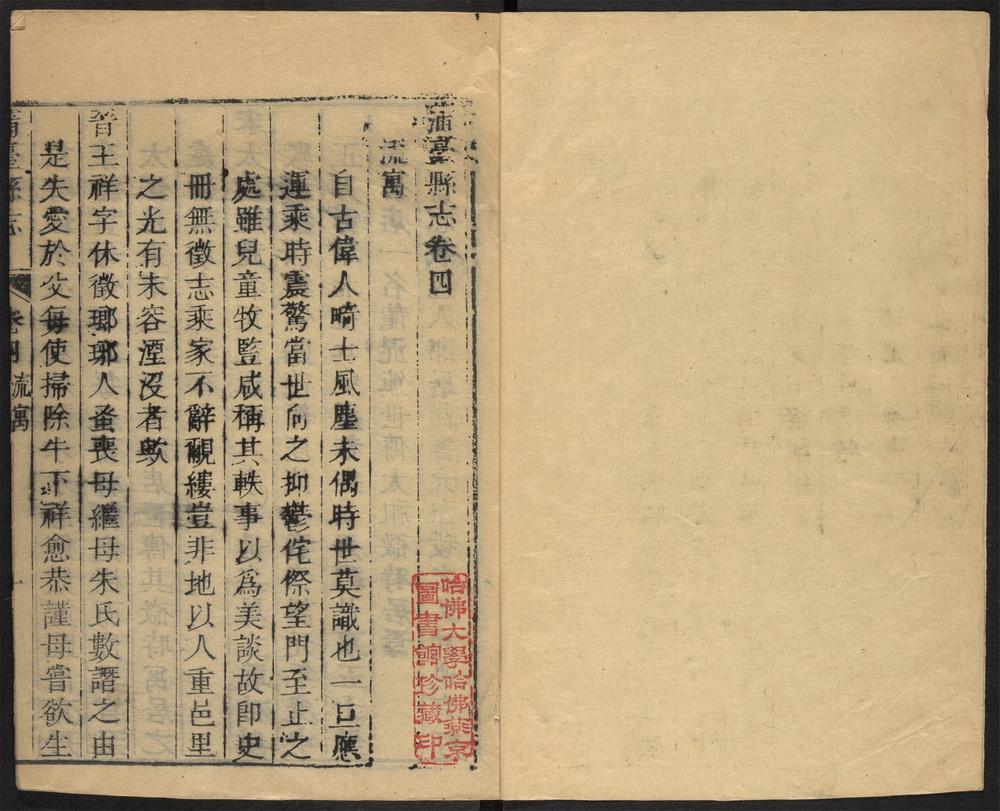 蒲臺縣志卷四
流寓
自古偉人畸士風塵未偶時世莫識也一旦應
運乘時震驚當世向之抑鬱侘傺望門至止之
處雖兒童牧豎咸稱其軼事以爲美談故即史
冊無徵志乘家不辭覼縷豈非地以人重邑里
之光有未容湮沒者歟
晉王祥字休徵瑯琊人蚤喪母繼母朱氏數譖之由
是失愛於父每使掃除牛下祥愈恭謹母嘗欲生
蒲臺縣志
卷四 流寓
一
哈佛大學哈佛燕京
圖書館珍藏印